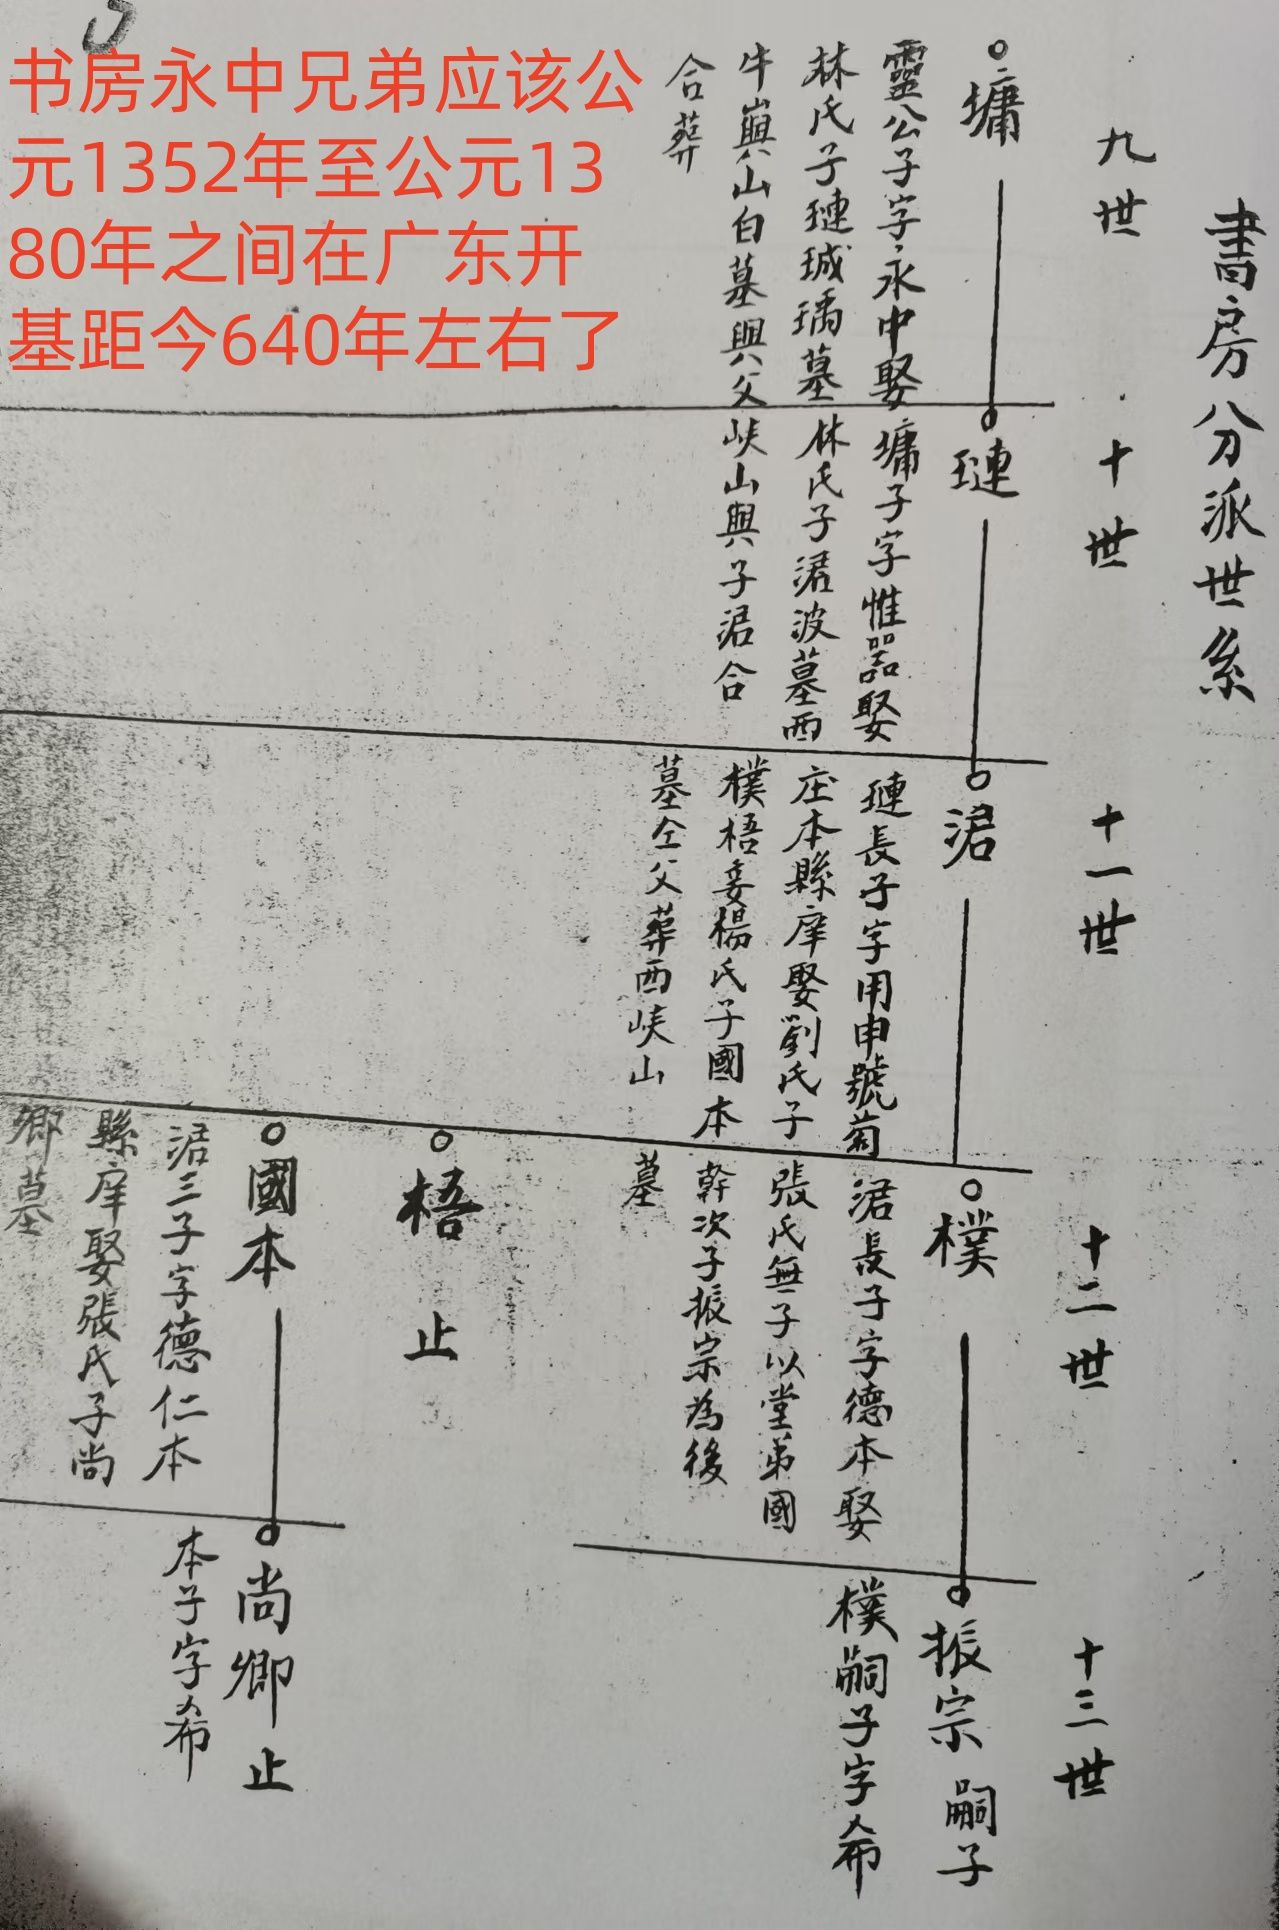 书房永中兄弟应该公
元1352年至公元13
80年之间在广东开
基距今640年左右了
書房分派世系
九世
墉
靈公子字永中娶
林氏子璉珹瑀墓
牛嶼山自墓與父
合葬
十世
璉
墉子字惟器娶
林氏子涒波墓西
峡山與子涒合
十一世
涒
璉長子字用申號菊
庄本縣庠娶劉氏子
樸梧妾楊氏子國本
墓仝父葬西峡山
十二世
樸
涒長子字德本娶
張氏無子以堂弟國
幹次子振宗為後
墓
梧 止
國本
涒三子字德仁本
縣庠娶張氏子尚
卿墓
十三世
振宗 嗣子
樸嗣子字希
尚卿 止
本子字希